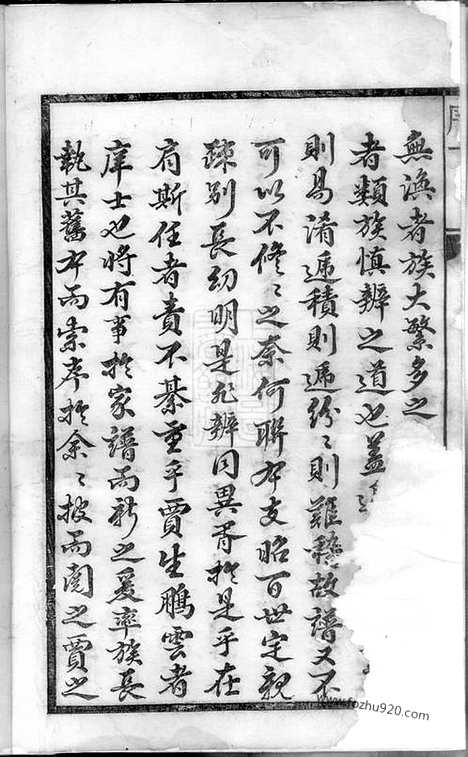 無渙者族大繁多之
者類族慎辨之道也蓋
則易淆遞積則遞紛〻則難稽故譜又不
可以不修〻之奈何聯本支昭百世定親
疎別長幼明是非辨同異胥於是乎在
肩斯任者責不綦重乎賈生鵬雲者
庠士也將有事於家譜而新之爰率族長
執其舊本而索序於余〻披而閱之賈之
www.fozhu920.com